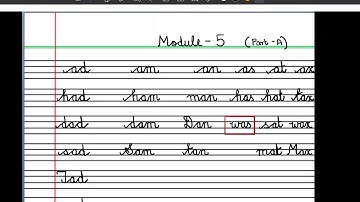 Module - 5 (Part - A)
ad am an as at ax
had ham man has hat tax
dad dam Dan was sat wax
sad Sam tan mat Max
Tad